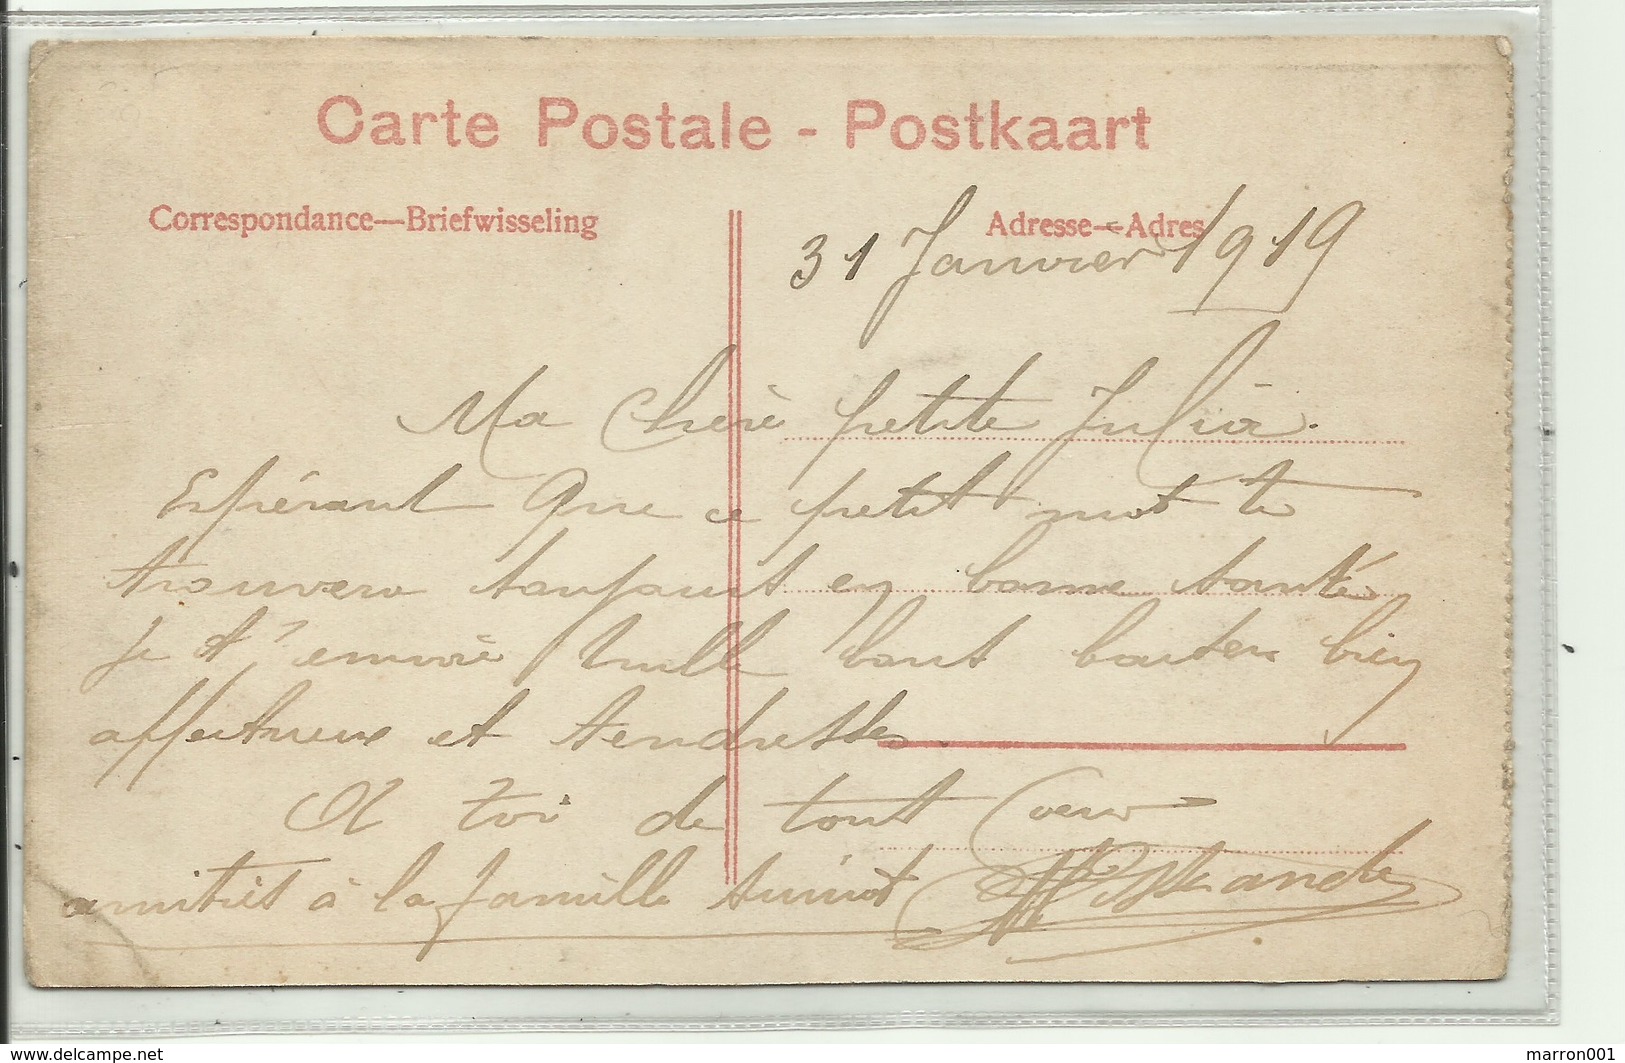 Carte Postale - Postkaart
Correspondance—Briefwisseling
Adresse—Adres
31 Janvier 1919
Ma Chère petite Julia.
Espérant Que ce petit mot te
trouvera en bonne santé
Je t'envoie mille bien
affectueux et tendresses.
A toi de tout Coeur
amitiés à la famille
www.delcampe.net
marron001